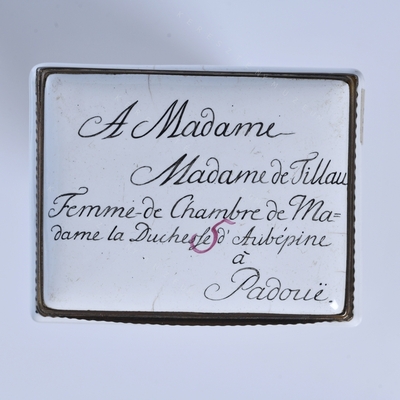 A Madame
Madame de Tillau
Femme de Chambre de Ma=
dame la Duchesse d'Aubépine
5
à
Padouë.